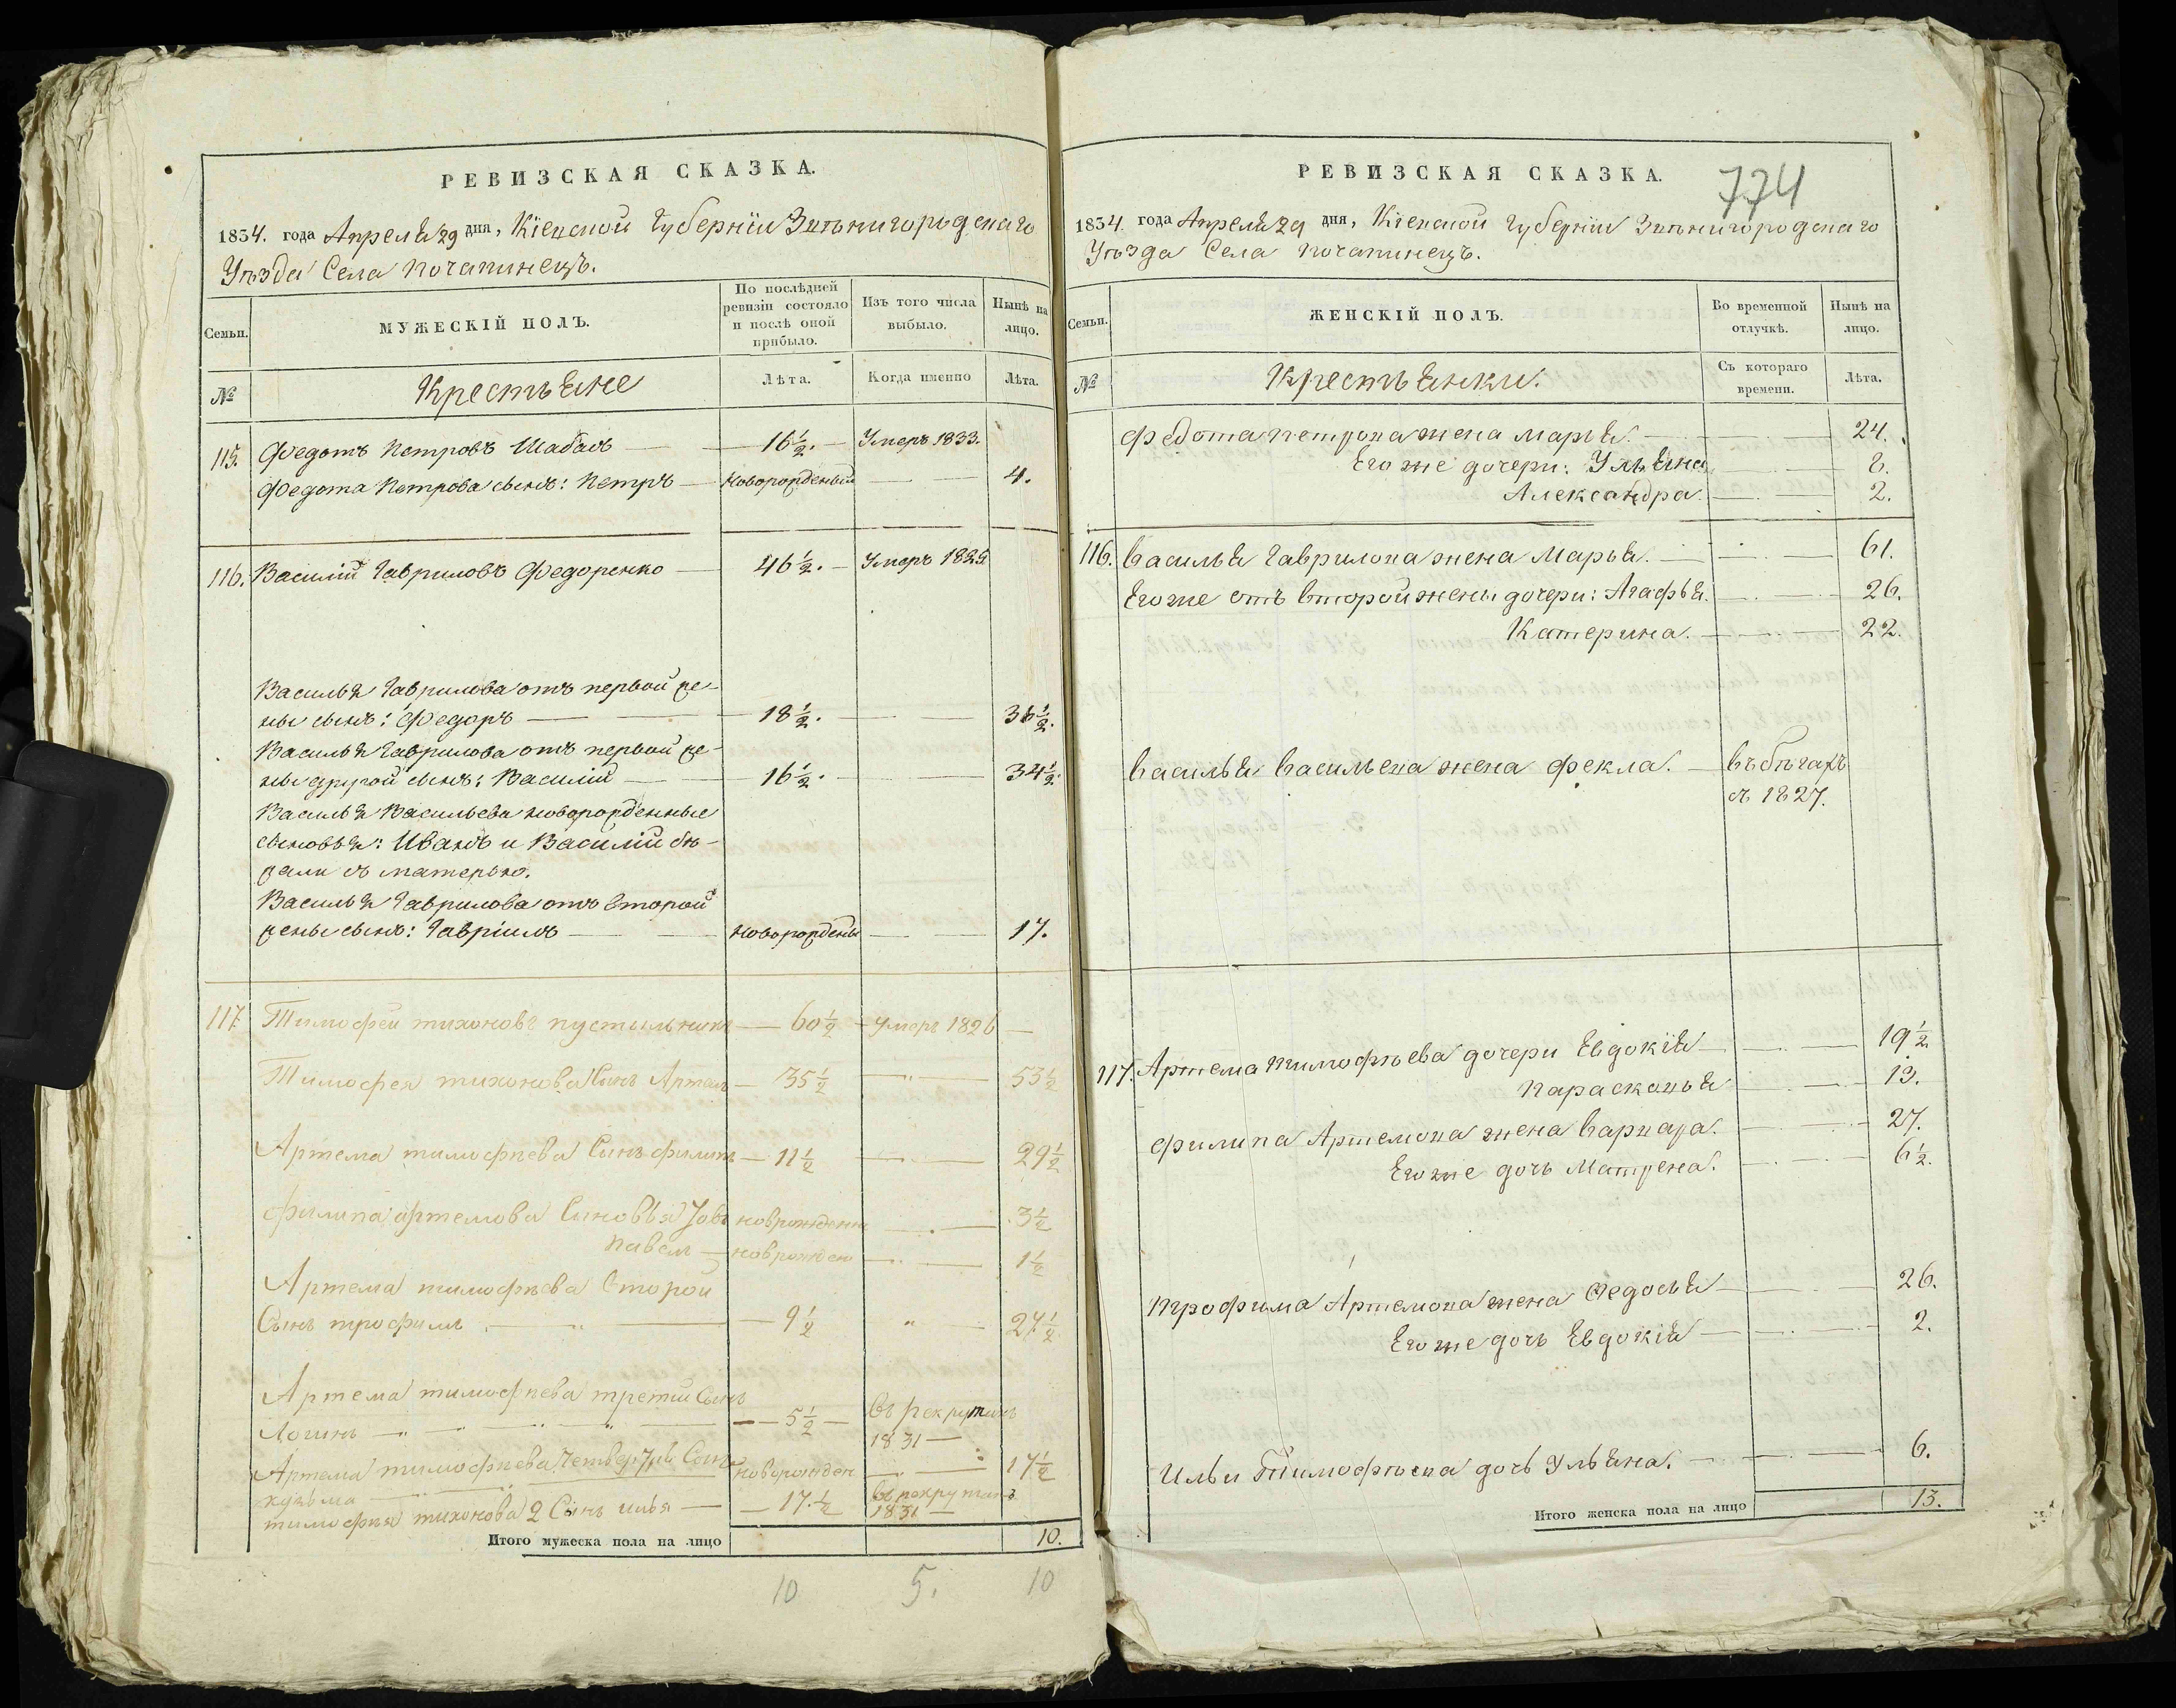 РЕВИЗСКАЯ СКАЗКА.
1834. года Апреля 29 дня, Кіевской Губерніи Звѣнигородскаго
Уѣзда Села Почапинецъ.
Семьи.
МУЖЕСКІЙ ПОЛЪ.
По послѣдней ревизіи состояло и послѣ оной прибыло.
Изъ того числа выбыло.
Нынѣ на лицо.
№
Крестьяне
Лѣта.
Когда именно
Лѣта.
115. Федотъ Петровъ Шабаль — 16½. — Умеръ 1833.
Федота Петрова сынъ: Петръ — новорожденый — 4.
116. Василій Гавриловъ Федоренко — 46½. — Умеръ 1829
Василья Гаврилова отъ первой же-
ны сынъ: Федоръ — 18½. — 36½.
Василья Гаврилова отъ первой же-
ны другой сынъ: Василій — 16½. — 34½.
Василья Васильева новорожденные
сыновья: Иванъ и Василій бѣ-
жали съ матерью.
Василья Гаврилова отъ второй
жены сынъ: Гавріилъ — новорожденый — 17.
117 Тимофей тихоновъ пустыльникъ — 60½ — умеръ 1826 —
Тимофея тихонова Сынъ Артемъ — 35½ — 53½
Артема тимофѣева Сынъ филипъ — 11½ — 29½
филипа артемова Синовья Іовъ новрожденны — 3½
павелъ — новрожден — 1½
Артема тимофѣева второй
Сынъ трофимъ — 9½ — " — 27½
Артема тимофѣева третій Сынъ
Логинъ — 5½ — въ рекрутахъ
1831 —
Артема тимофѣева четвертый Сынъ новорожден — 17½
кузьма
тимофѣя тихонова 2 Сынъ илья — 17.½ въ рекрутахъ
1831 —
Итого мужеска пола на лицо 10.
10 5. 10
РЕВИЗСКАЯ СКАЗКА.
774
1834. года Апреля 29 дня, Кіевской Губерніи Звѣнигородскаго
Уѣзда Села Почапинецъ.
Семьи.
ЖЕНСКІЙ ПОЛЪ.
Во временной отлучкѣ.
Нынѣ на лицо.
№
Крестьянки.
Съ котораго времени.
Лѣта.
Федота Петрова жена Марья. — 24.
Его же дочери: Ульяна — 8.
Александра. — 2.
116. Василья Гаврилова жена Марья. — 61.
Его же отъ второй жены дочери: Агафья. — 26.
Катерина. — 22.
Василья Васильева жена Фекла. — въ бѣгахъ
съ 1827.
117. Артема Тимофѣева дочери Евдокія — 19½
Парасковья — 13.
Филипа Артемова жена Варвара. — 27.
Его же дочь Матрена. — 6½.
Трофима Артемова жена Федосья — 26.
Его же дочь Евдокія — 2.
Ильи Тимофѣева дочь Ульяна. — 6.
Итого женска пола на лицо 13.